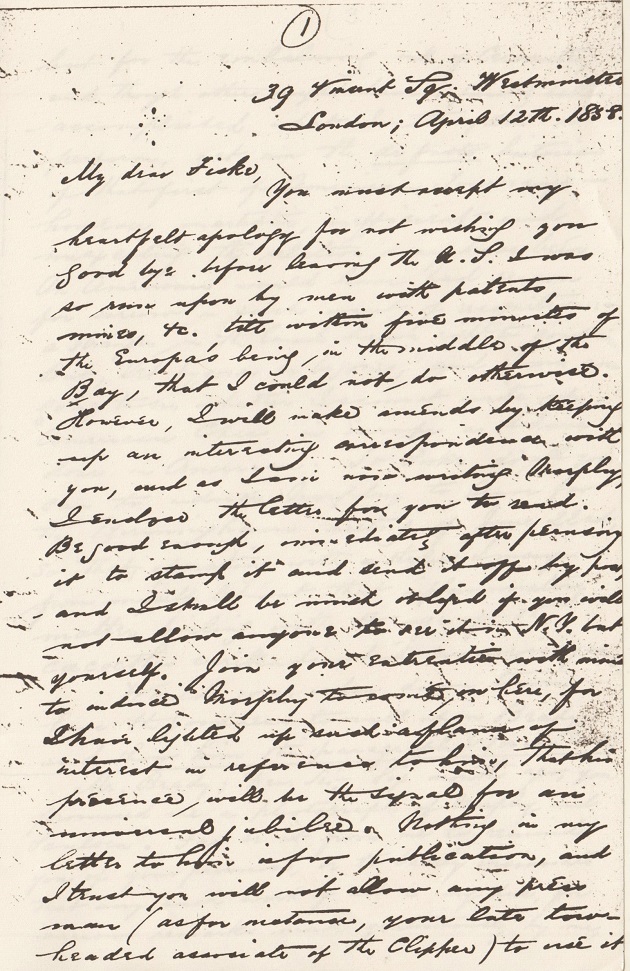 1
39 Vincent Sq. Westminster
London; April 12th. 1858.
My dear Fiske,
You must accept my
heartfelt apology for not wishing you
good bye before leaving the U.S. I was
so run upon by men with patents,
mines, &c. till within five minutes of
the Europa's being in the middle of the
Bay, that I could not do otherwise.
However, I will make amends by keeping
up an interesting correspondence with
you, and as I am now writing Morphy,
I enclose the letter for you to read.
Be good enough, immediately after perusing
it to stamp it and send it off by post,
and I shall be much obliged if you will
not allow anyone to see it in N.Y. but
yourself. Join your entreaties with mine
to induce Morphy to come on here, for
I have lighted up such a flame of
interest in reference to him, that his
presence, will be the signal for an
universal jubilee. Nothing in my
letter to him is for publication, and
I trust you will not allow any press
man (as for instance, your late tow-
headed associate of the Clipper) to use it